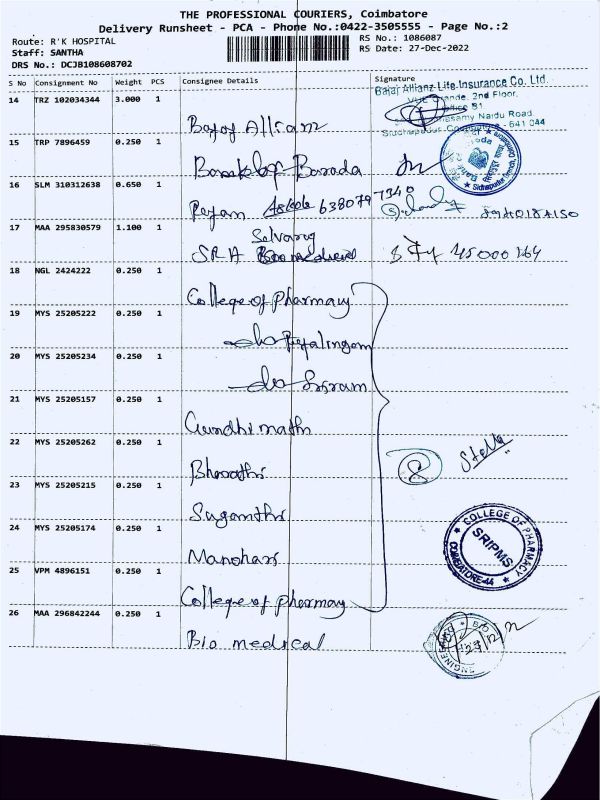 THE PROFESSIONAL COURIERS, Coimbatore
Delivery Runsheet - PCA - Phone No.:0422-3505555 - Page No.:2
Route: R'K HOSPITAL
RS No.: 1086087
Staff: SANTHA
RS Date: 27-Dec-2022
DRS No.: DCJB108608702
S No Consignment No Weight PCS Consignee Details Signature
Bajaj Allianz Life Insurance Co. Ltd.
2nd Floor,
14 TRZ 102034344 3.000 1
Naidu Road
641 044
Bajaj Allianz
15 TRP 7896459 0.250 1
Baroda
16 SLM 310312638 0.650 1
6380797340
17 MAA 295830579 1.100 1
Selvaraj
SRA
18 NGL 2424222 0.250 1
College of Pharmacy
19 MYS 25205222 0.250 1
20 MYS 25205234 0.250 1
Sriram
21 MYS 25205157 0.250 1
Gundhimathi
22 MYS 25205262 0.250 1
Stella
Bharathi
23 MYS 25205215 0.250 1
Suganthi
24 MYS 25205174 0.250 1
COLLEGE OF PHARMACY
SRIPMS
COIMBATORE-44
Manohar
25 VPM 4896151 0.250 1
College of pharmay
26 MAA 296842244 0.250 1
Bio medical